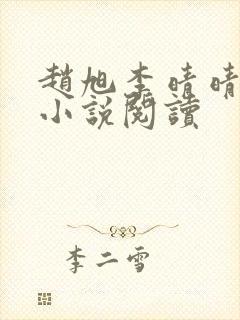 趙旭李晴晴
小說閱讀
李二雪